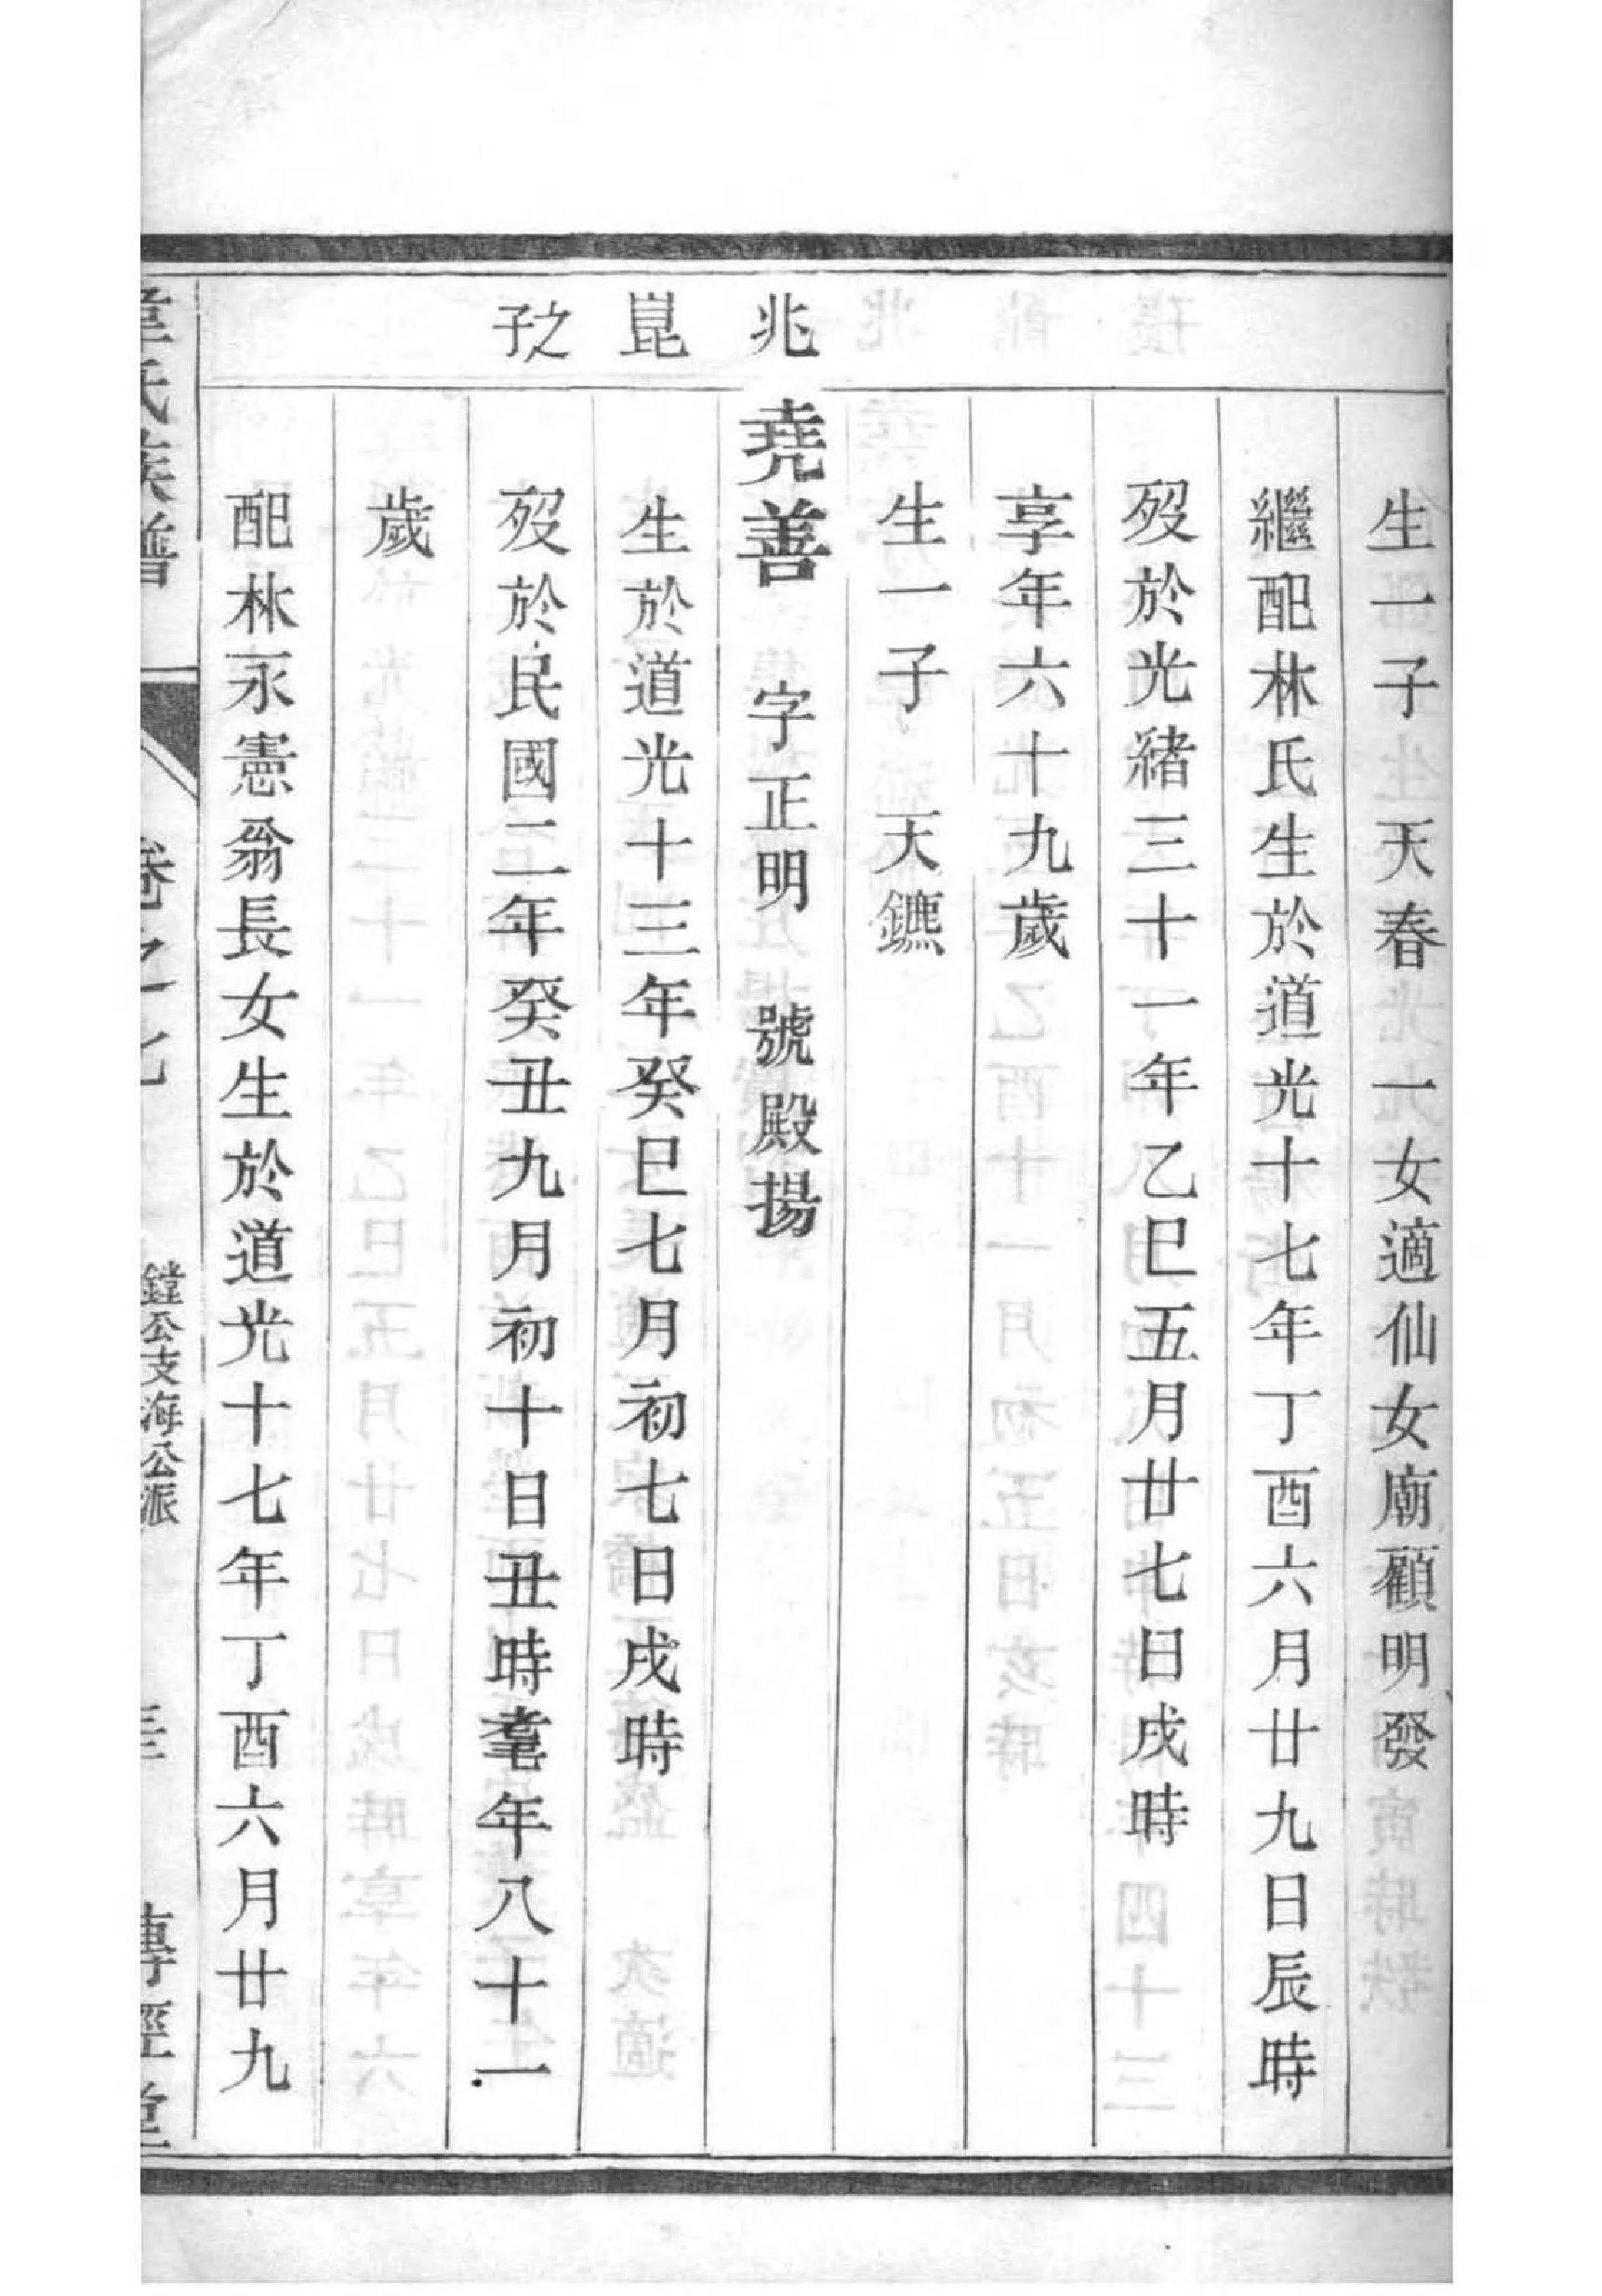 生一子天春一女適仙女廟顧明發
繼配林氏生於道光十七年丁酉六月廿九日辰時
歿於光緒三十一年乙巳五月廿七日戌時
享年六十九歲
生一子　天鑣
兆崑之子
堯善　字正明　號殿揚
生於道光十三年癸巳七月初七日戌時
歿於民國二年癸丑九月初十日丑時耄年八十一
歲
配林永憲翁長女生於道光十七年丁酉六月廿九
族譜
卷之
鏜公支海公派
傳經堂